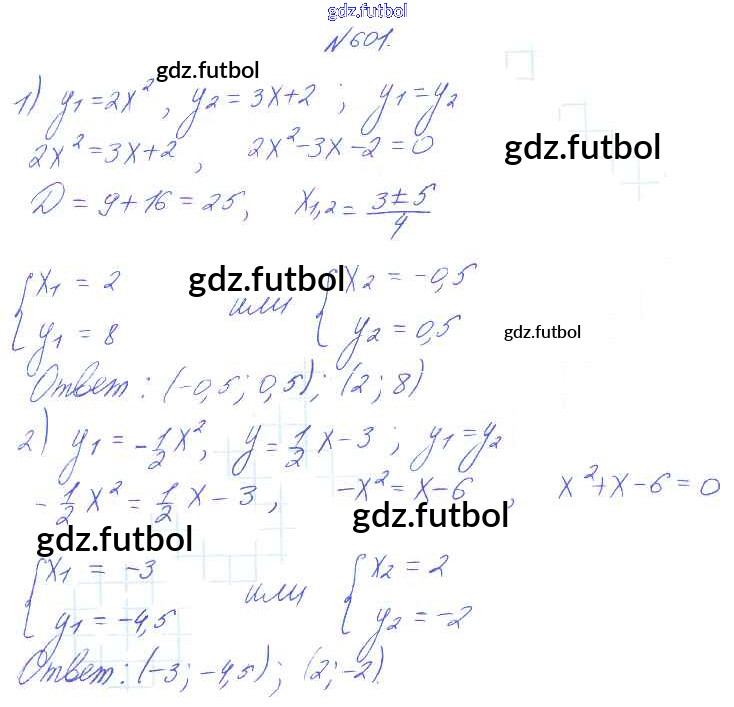 gdz.futbol
№601.
gdz.futbol
1) y₁ = 2x², y₂ = 3x+2 ; y₁ = y₂
2x² = 3x+2, 2x²-3x-2 = 0 gdz.futbol
D = 9+16 = 25, x₁,₂ = (3±5)/4
{x₁ = 2 gdz.futbol {x₂ = -0,5
или
y₁ = 8 y₂ = 0,5 gdz.futbol
Ответ: (-0,5; 0,5); (2; 8)
2) y₁ = -1/2 x², y = 1/2 x - 3 ; y₁ = y₂
-1/2 x² = 1/2 x - 3, -x² = x-6, x²+x-6 = 0
gdz.futbol gdz.futbol
{x₁ = -3 или {x₂ = 2
y₁ = -4,5 y₂ = -2
Ответ: (-3; -4,5); (2; -2).